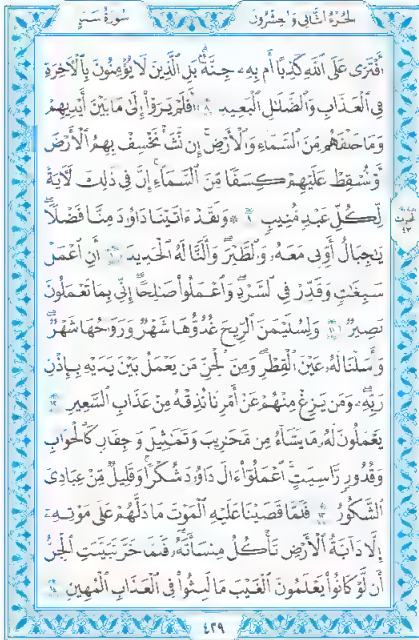 الجزء الثاني والعشرون سورة سبإ
أَفْتَرَىٰ عَلَى ٱللَّهِ كَذِبًا أَم بِهِۦ جِنَّةٌۢ ۗ بَلِ ٱلَّذِينَ لَا يُؤْمِنُونَ بِٱلْءَاخِرَةِ
فِى ٱلْعَذَابِ وَٱلضَّلَـٰلِ ٱلْبَعِيدِ ٨ أَفَلَمْ يَرَوْا۟ إِلَىٰ مَا بَيْنَ أَيْدِيهِمْ
وَمَا خَلْفَهُم مِّنَ ٱلسَّمَآءِ وَٱلْأَرْضِ ۚ إِن نَّشَأْ نَخْسِفْ بِهِمُ ٱلْأَرْضَ
أَوْ نُسْقِطْ عَلَيْهِمْ كِسَفًا مِّنَ ٱلسَّمَآءِ ۚ إِنَّ فِى ذَٰلِكَ لَـَٔايَةً
لِّكُلِّ عَبْدٍ مُّنِيبٍ ٩ ۞ وَلَقَدْ ءَاتَيْنَا دَاوُۥدَ مِنَّا فَضْلًا ۖ
يَـٰجِبَالُ أَوِّبِى مَعَهُۥ وَٱلطَّيْرَ ۖ وَأَلَنَّا لَهُ ٱلْحَدِيدَ ١٠ أَنِ ٱعْمَلْ
سَـٰبِغَـٰتٍ وَقَدِّرْ فِى ٱلسَّرْدِ ۖ وَٱعْمَلُوا۟ صَـٰلِحًا ۖ إِنِّى بِمَا تَعْمَلُونَ
بَصِيرٌ ١١ وَلِسُلَيْمَـٰنَ ٱلرِّيحَ غُدُوُّهَا شَهْرٌ وَرَوَاحُهَا شَهْرٌ ۖ
وَأَسَلْنَا لَهُۥ عَيْنَ ٱلْقِطْرِ ۖ وَمِنَ ٱلْجِنِّ مَن يَعْمَلُ بَيْنَ يَدَيْهِ بِإِذْنِ
رَبِّهِۦ ۖ وَمَن يَزِغْ مِنْهُمْ عَنْ أَمْرِنَا نُذِقْهُ مِنْ عَذَابِ ٱلسَّعِيرِ ١٢
يَعْمَلُونَ لَهُۥ مَا يَشَآءُ مِن مَّحَـٰرِيبَ وَتَمَـٰثِيلَ وَجِفَانٍ كَٱلْجَوَابِ
وَقُدُورٍ رَّاسِيَـٰتٍ ۚ ٱعْمَلُوٓا۟ ءَالَ دَاوُۥدَ شُكْرًا ۚ وَقَلِيلٌ مِّنْ عِبَادِىَ
ٱلشَّكُورُ ١٣ فَلَمَّا قَضَيْنَا عَلَيْهِ ٱلْمَوْتَ مَا دَلَّهُمْ عَلَىٰ مَوْتِهِۦٓ
إِلَّا دَآبَّةُ ٱلْأَرْضِ تَأْكُلُ مِنسَأَتَهُۥ ۖ فَلَمَّا خَرَّ تَبَيَّنَتِ ٱلْجِنُّ
أَن لَّوْ كَانُوا۟ يَعْلَمُونَ ٱلْغَيْبَ مَا لَبِثُوا۟ فِى ٱلْعَذَابِ ٱلْمُهِينِ ١٤
٤٢٩